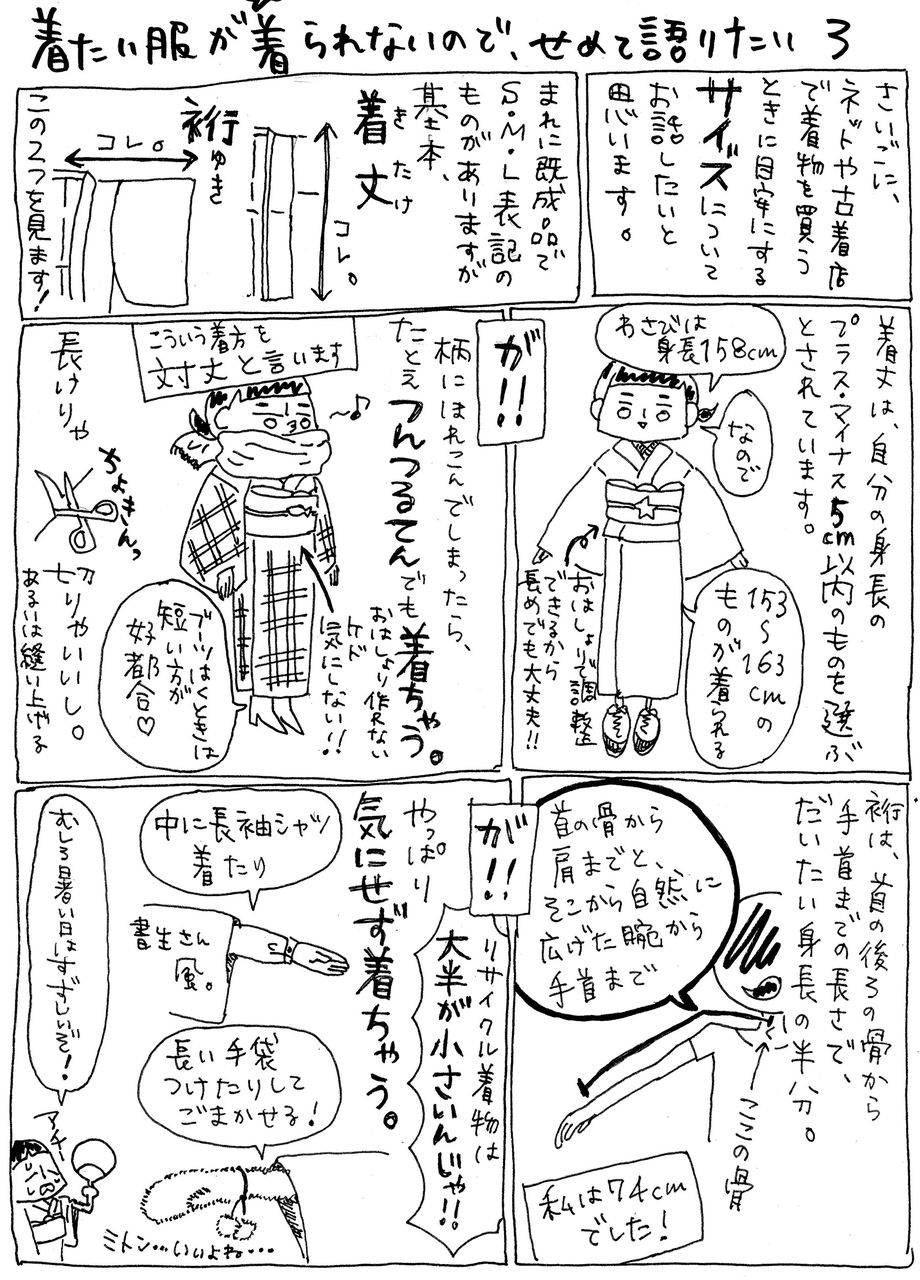 着たい服が着られないので、せめて語りたい 3
さいごに、
ネットや古着店
で着物を買う
ときに目安にする
サイズについて
お話したいと
思います。
まれに既成品で
S・M・L表記の
ものがありますが
基本、
着丈
きたけ
コレ。
裄
ゆき
コレ。
この2つを見ます!
着丈は、自分の身長の
プラス・マイナス5cm以内のものを選ぶ
とされています。
わさびは
身長158cm
なので
153
〜
163
cmの
ものが着られる
おはしょりで調整
できるから
長めでも大丈夫!!
が!!
柄にほれこんでしまったら、
たとえつんつるてんでも着ちゃう。
こういう着方を
対丈と言います
〜♪
おはしょり作れない
ケド
気にしない!!
ブーツはくときは
短い方が
好都合♡
長けりゃ
ちょきんっ
切りゃいいし。
あるいは縫い上げる
裄は、首の後ろの骨から
手首までの長さで、
だいたい身長の半分。
首の骨から
肩までと、
そこから自然に
広げた腕から
手首まで
ここの骨
私は74cm
でした!
が!!
リサイクル着物は
大半が小さいんじゃ!!
やっぱり
気にせず着ちゃう。
中に長袖シャツ
着たり
書生さん
風。
長い手袋
つけたりして
ごまかせる!
ミトン…いいよね…
むしろ暑い日はすずしいぞ!
アチー